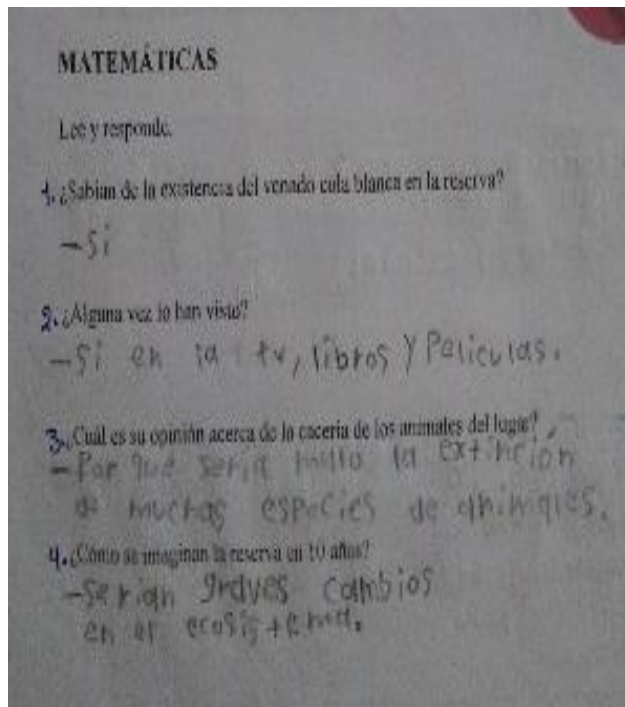 MATEMÁTICAS
Lee y responde.
1. ¿Sabían de la existencia del venado cola blanca en la reserva?
- Si
2. ¿Alguna vez lo han visto?
- Si en la tv, libros y Peliculas.
3. ¿Cuál es su opinión acerca de la cacería de los animales del lugar?
- Por que seria la extincion
de muchas especies de animales.
4. ¿Cómo se imaginan la reserva en 10 años?
- Serian graves cambios
en el ecosistema.